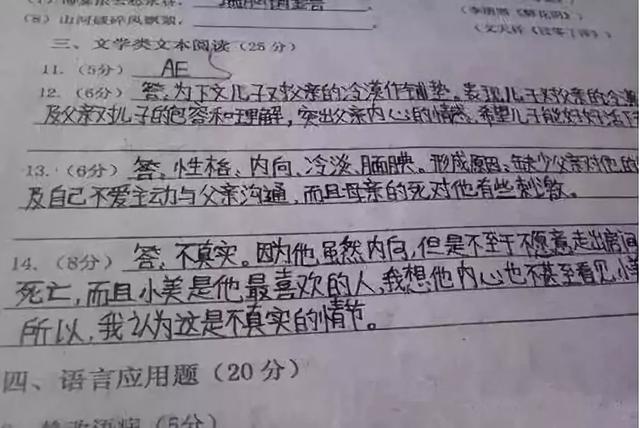 (8) 山河破碎风飘絮，
(文天祥《过零丁洋》)
三、文学类文本阅读（25分）
11.（5分） AE
12.（6分） 答：为下文儿子对父亲的冷漠作铺垫。表现儿子对父亲的冷漠
及父亲对儿子的包容和理解，突出父亲内心的情感，希望儿子能好好活下
13.（6分） 答：性格：内向、冷淡、腼腆。形成原因：缺少父亲对他的
及自己不爱主动与父亲沟通，而且母亲的死对他有些刺激。
14.（8分） 答：不真实。因为他虽然内向，但是不至于不愿意走出房间
死亡，而且小美是他最喜欢的人，我想他内心也不甚至看见小美
所以，我认为这是不真实的情节。
四、语言应用题（20分）
(5分)